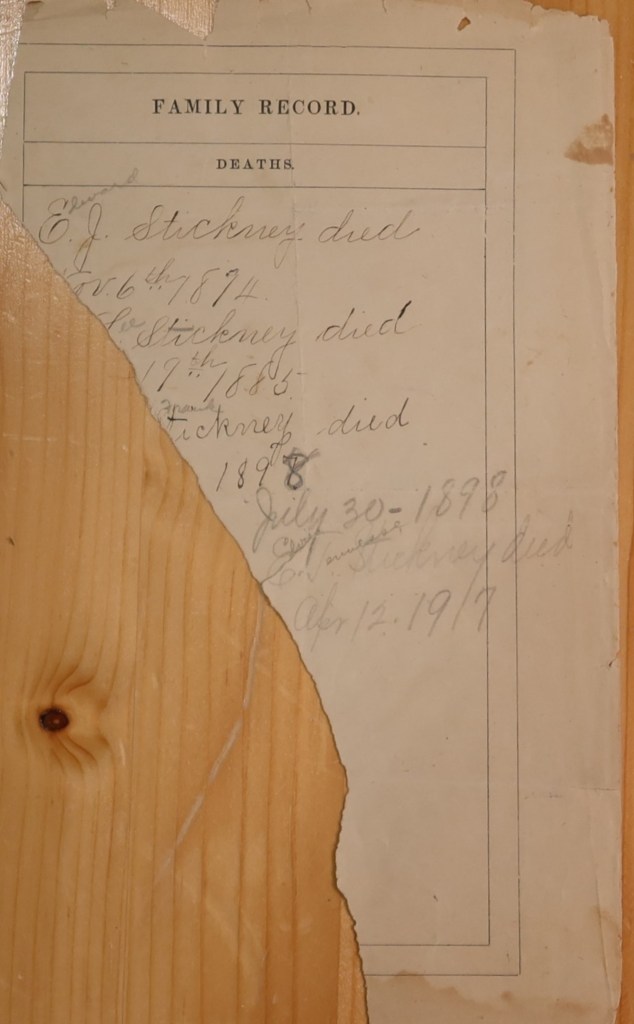 FAMILY RECORD.
DEATHS.
Edward
E. J. Stickney died
ov. 6th 1874.
Stickney died
17th 1885
Frank
tickney died
1898
July 30-1898
E. T. Stickney died
Apr 12. 1917